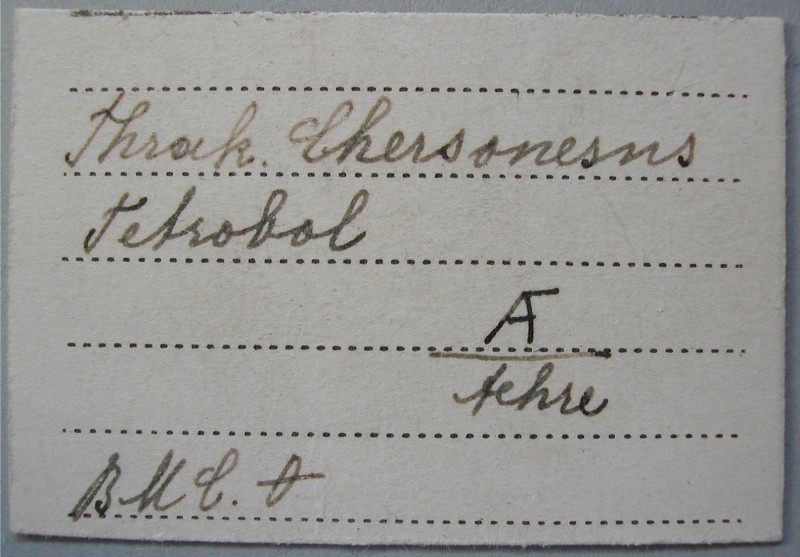 Thrak. Chersonesus
Tetrobol
Æ
Aehre
B M C.